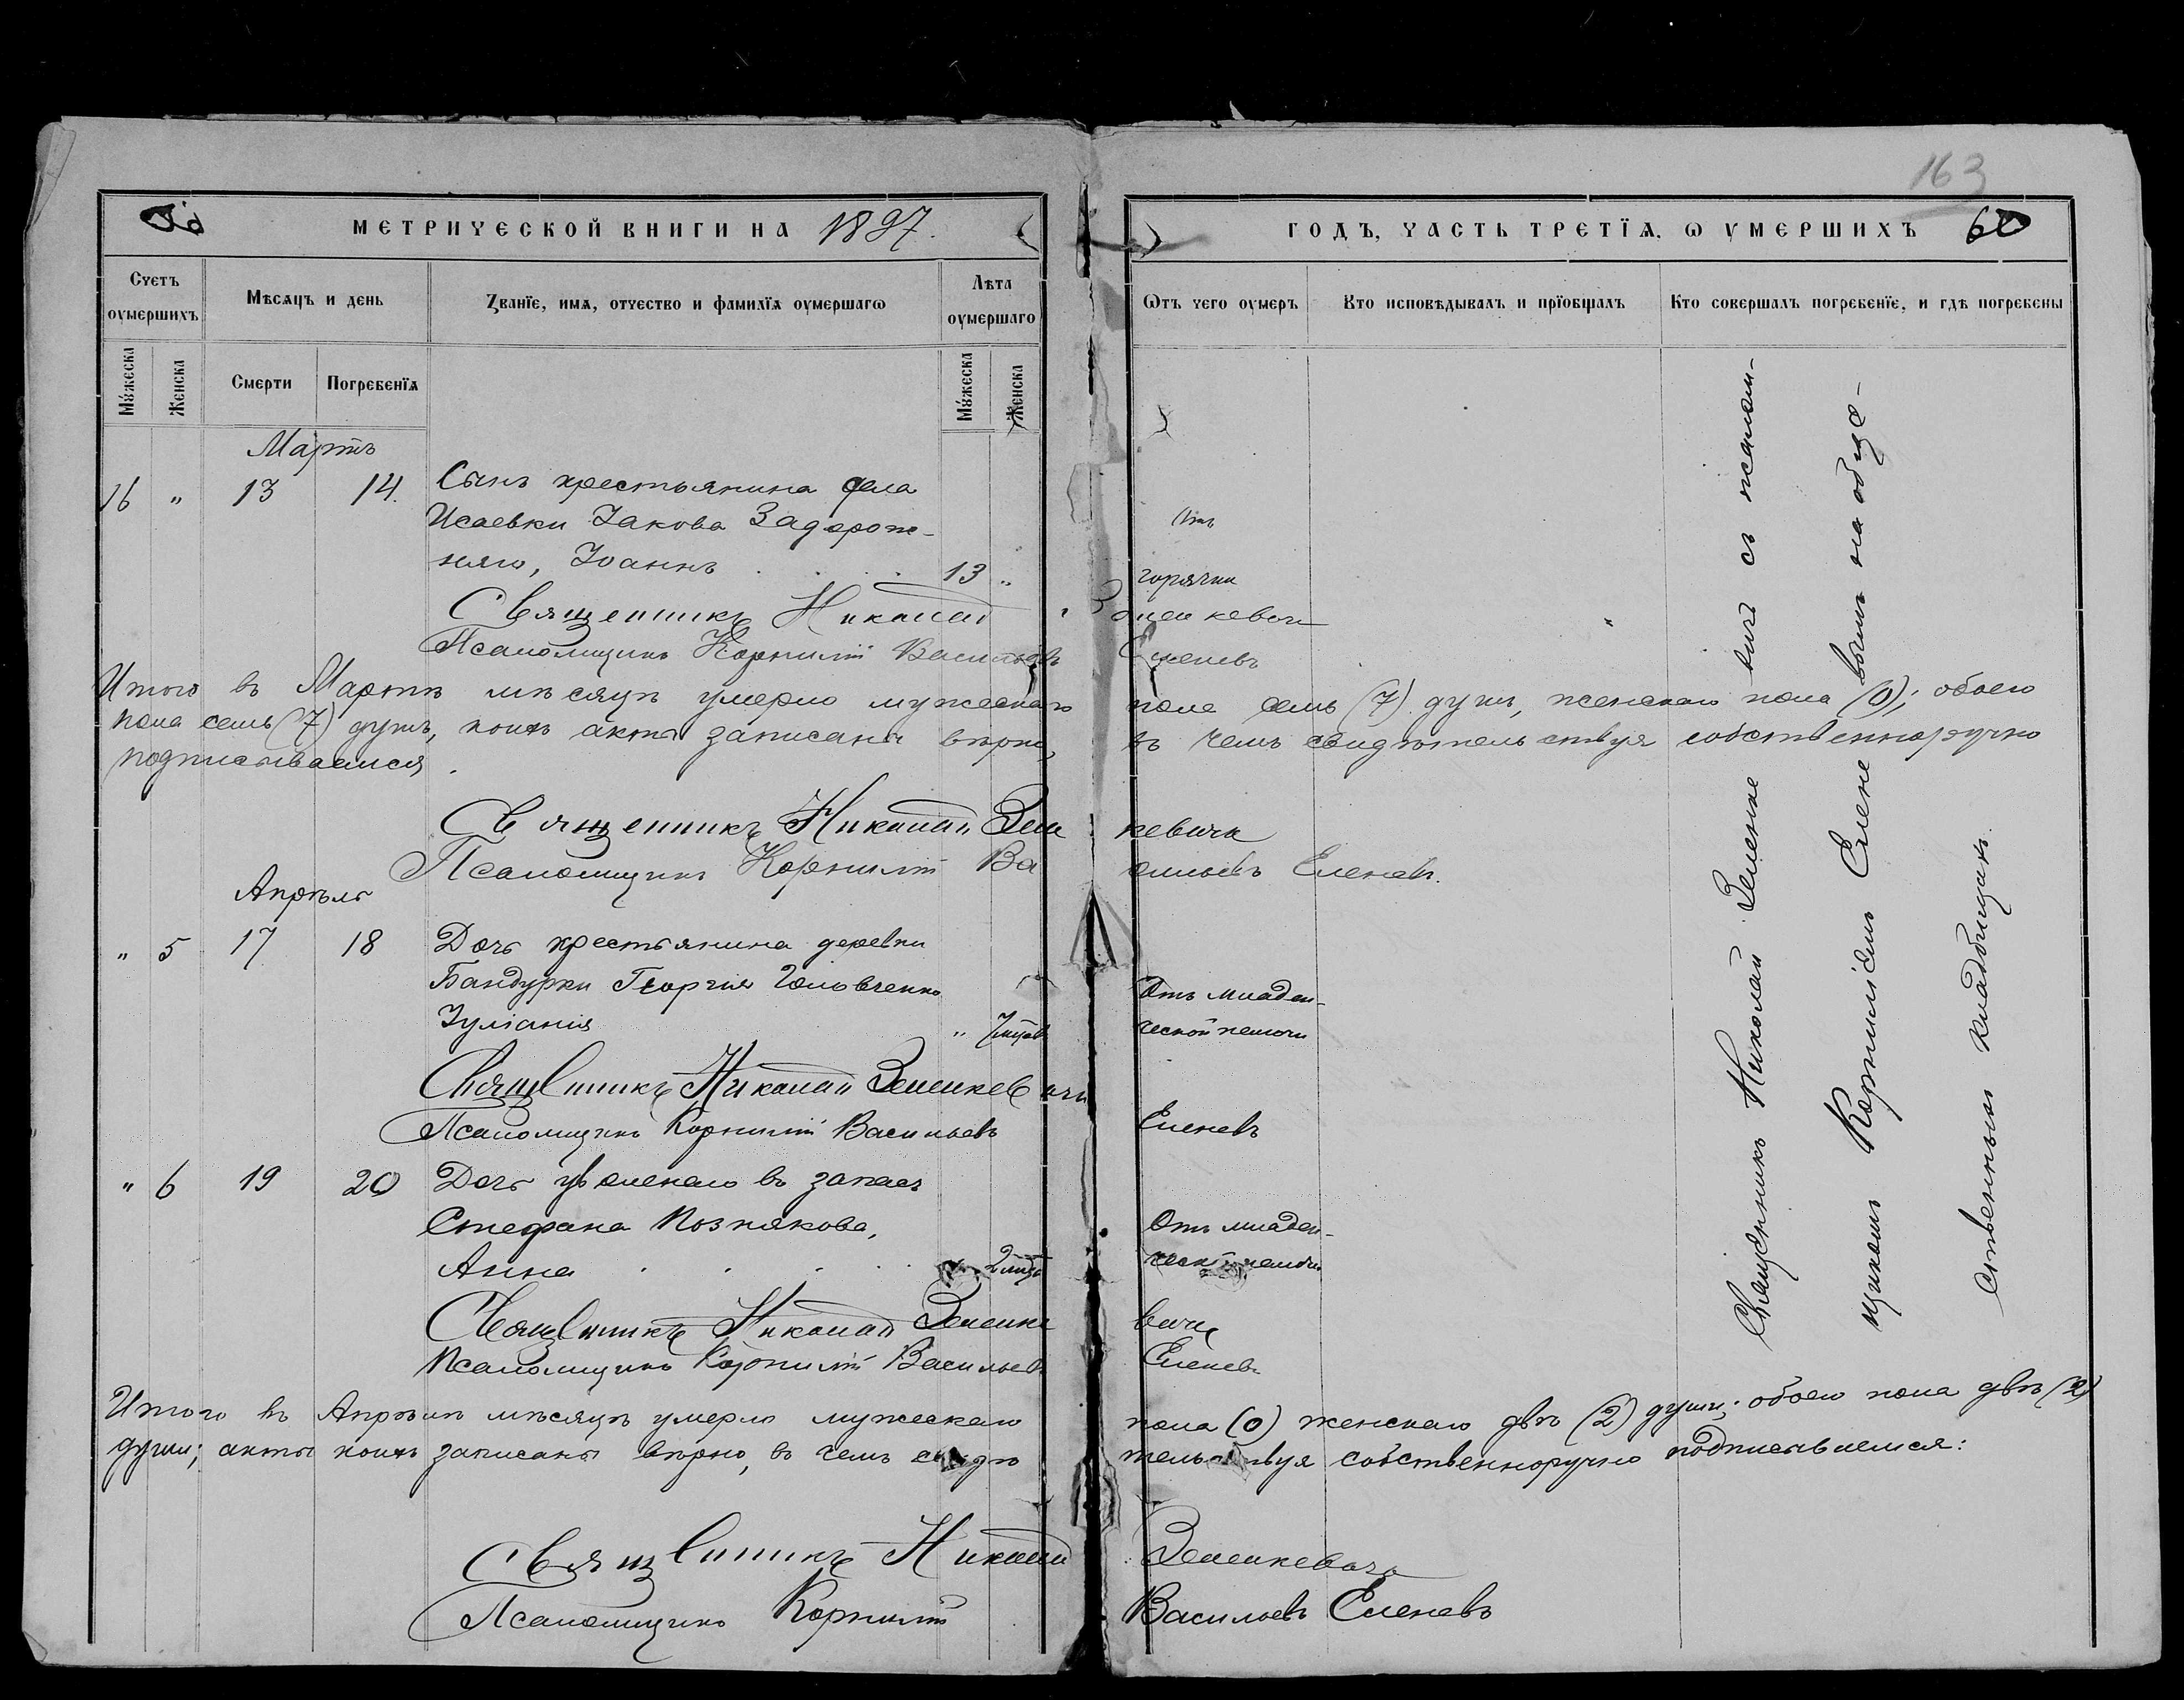 163
МЕТРИЧЕСКОЙ КНИГИ НА 1897.
ГОДЪ, ЧАСТЬ ТРЕТЇѦ, Ѡ УМЕРШИХЪ 60
Счетъ оумершихъ
Мѣсяцъ и день
Званїе, имѧ, отчество и фамилїѧ оумершагѡ
Лѣта оумершаго
Ѿтъ чего оумеръ
Кто исповѣдывалъ и прїобщалъ
Кто совершалъ погребенїе, и гдѣ погребены
Мꙋжеска
Женска
Смерти
Погребенїѧ
Мꙋжеска
Женска
Мартъ
16 " 13 14. Сынъ крестьянина села
Исаевки Іакова Задорож-
няго, Іоаннъ . . . . 13 "
Отъ
горячки
Священникъ Николай Зеленкевичъ
Псаломщикъ Корнилій Васильевъ Еленевъ
Итого въ Мартѣ мѣсяцѣ умерло мужескаго пола семь (7) душъ, женскаго пола (0); обоего
пола семь (7) душъ, коихъ акты записаны вѣрно, въ чемъ свидѣтельствуя собственноручно
подписываемся.
Священникъ Николай Зеленкевичъ
Псаломщикъ Корнилій Васильевъ Еленевъ.
Апрѣль
" 5 17 18 Дочь крестьянина деревни
Бандурки Георгія Головченко
Іуліанія " 7 мѣсяц
Отъ младен-
ческой немочи
Священникъ Николай Зеленкевичъ
Псаломщикъ Корнилій Васильевъ Еленевъ
" 6 19 20 Дочь уволенаго въ запасъ
Стефана Познякова,
Анна . . . . . 2 мѣс
Отъ младен-
ческой немочи
Священникъ Николай Зеленкевичъ
Псаломщикъ Корнилій Васильевъ Еленевъ
Итого въ Апрѣлѣ мѣсяцѣ умерло мужескаго пола (0) женскаго двѣ (2) души; обоего пола двѣ (2)
души; акты коихъ записаны вѣрно, въ чемъ свидѣтельствуя собственноручно подписываемся:
Священникъ Николай Зеленкевичъ
Псаломщикъ Корнилій Васильевъ Еленевъ
Священникъ Николай Зеленкевичъ съ псалом-
щикомъ Корниліемъ Еленевымъ на обще-
ственныхъ кладбищахъ.